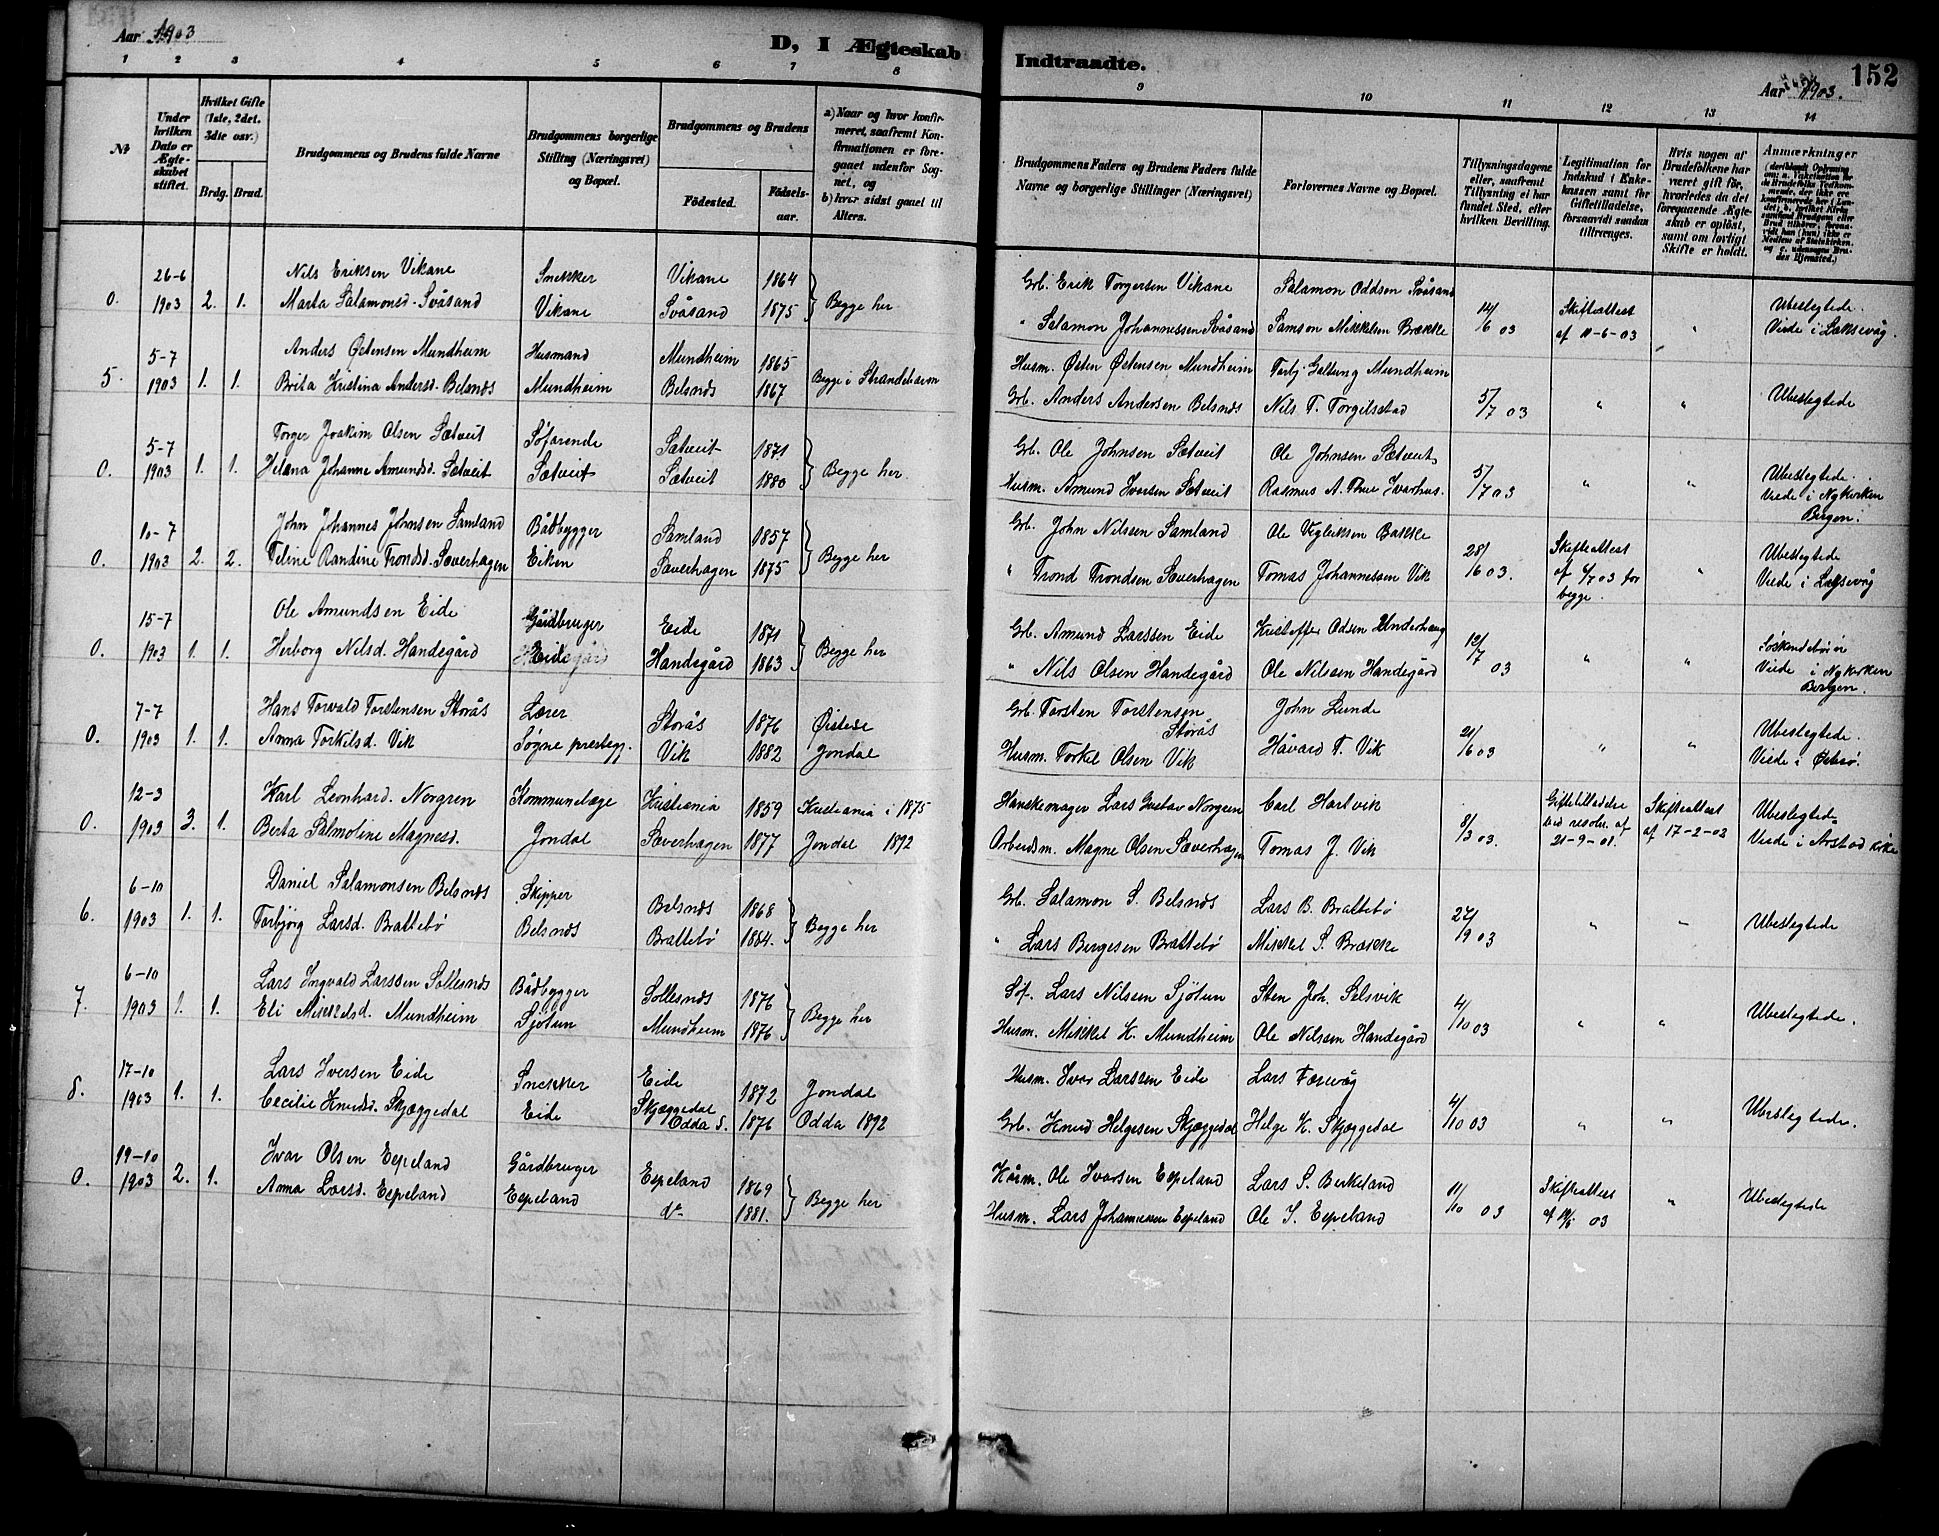 Aar 1903
D, I Ægteskab
Indtraadte.
Aar 1903.
152
1 2 3 4 5 6 7 8 9 10 11 12 13 14
Nr
Under hvilken Dato er Ægteskabet stiftet.
Hvilket Gifte (1ste, 2det, 3die osv.)
Brdg. Brud.
Brudgommens og Brudens fulde Navne
Brudgommens borgerlige Stilling (Næringsvei) og Bopæl.
Brudgommens og Brudens
Fødested.
Fødselsaar.
a) Naar og hvor konfirmeret, saafremt Konfirmationen er foregaaet udenfor Sognet, og
b) hvor sidst gaaet til Alters.
Brudgommens Faders og Brudens Faders fulde Navne og borgerlige Stillinger (Næringsvei)
Forlovernes Navne og Bopæl.
Tillysningsdagene eller, saafremt Tillysning ei har fundet Sted, efter hvilken Bevilling.
Legitimation for Indskud i Enkekassen samt for Giftetilladelse, forsaavidt saadan tiltrænges.
Hvis nogen af Brudefolkene har været gift før, hvorledes da det foregaaende Ægteskab er opløst, samt om lovligt Skifte er holdt.
Anmærkninger
26-6 Nils Eriksen Vikane Snekker Vikane 1864 Grb. Erik Torgersen Vikane Salamon Oddsen Svåsand
0. 1903 2. 1. Marta Salamonsd. Svåsand Vikane Svåsand 1875 Begge her " Salamon Johannessen Svåsand Samson Mikkelsen Brække 14/6 03 Skifteattest af 11-6-03 " Ubeslegtede. Viede i Laksevåg.
5-7 Anders Østensen Mundheim Husmand Mundheim 1865 Husm. Østen Østensen Mundheim Torbj. Galtung Mundheim
5. 1903 1. 1. Brita Kristina Andersd. Belsnes Mundheim Belsnes 1867 Begge i Strandebarm Grb. Anders Andersen Belsnes Nils T. Torgilsstad 5/7 03 " " Ubeslegtede
5-7 Torger Joakim Olsen Sætveit Søfarende Sætveit 1871 Grb. Ole Johnsen Sætveit Ole Johnsen Sætveit
0. 1903 1. 1. Helena Johanne Amundsd. Sætveit Sætveit Sætveit 1880 Begge her Husm. Amund Iversen Sætveit Rasmus A. Thue Ivarhus. 5/7 03 " " Ubeslegtede. Viede i Nykirken Bergen.
10-7 John Johannes Johnsen Samland Bådbygger Samland 1857 Grb. John Nilssen Samland Ole Vigleiksen Bakke
0. 1903 2. 2. Teline Randine Trondsd. Sæverhagen Eiken Sæverhagen 1875 Begge her " Trond Trondsen Sæverhagen Tomas Johannessen Vik 28/6 03. Skifteattest af 4/7 03 for begge. " Ubeslegtede Viede i Laksevåg
15-7 Ole Amundsen Eide Gårdbruger Eide 1871 Grb. Amund Larssen Eide Kristoffer Odsen Underhaug
0. 1903 1. 1. Herborg Nilsd. Handegård Eide Handegård 1863 Begge her " Nils Olsen Handegård Ole Nilssen Handegård 12/7 03 " " Søskendebørn Viede i Nykirken Bergen.
7-7 Hans Torvald Torstensen Storås Lærer Storås 1876 Øistese Grb. Torsten Torstensen Storås John Lunde
0. 1903 1. 1. Anna Torkilsd. Vik Søgne prestegj. Vik 1882 Jondal Husm. Torkel Olsen Vik Håvard T. Vik 21/6 03 " " Ubeslegtede. Viede i
12-3 Karl Leonhard Norgren Kommunelæge Kristiania 1859 Kristiania i 1875 Hanskemager Lars Gustav Norgren Carl Hartvik
0. 1903 3. 1. Berta Salmoline Magnesd. Jondal Sæverhagen 1877 Jondal 1892 Arbeidsm. Magne Olsen Sæverhagen Tomas J. Vik 8/3 03. Giftetilladelse ved resolu. af 21-9-01. Skifteattest af 17-2-02 Ubeslegtede Viede i Årstad kirke
6-10 Daniel Salamonsen Belsnes Skipper Belsnes 1868 Grb. Salamon S. Belsnes Lars B. Brattebø
6. 1903 1. 1. Torbjörg Larsd. Brattebö Belsnes Brattebö 1884. Begge her " Lars Bergesen Brattebö Mikkel S. Brække 27/9 03 " " Ubeslegtede
6-10 Lars Ingvald Larssen Sollesnes Bådbygger Sollesnes 1876 Søf. Lars Nilsen Sjötun Sten Joh. Selsvik
7. 1903 1. 1. Eli Mikkelsd. Mundheim Sjötun Mundheim 1876 Begge her Husm. Mikkel K. Mundheim Ole Nilssen Handegård 4/10 03 " " Ubeslegtede.
17-10 Lars Iversen Eide Snekker Eide 1872 Jondal Husm. Ivar Larssen Eide Lars Torvåg
8. 1903 1. 1. Cecilie Knudsd. Skjæggedal Eide Skjæggedal Odda S. 1876 Odda 1892 Grb. Knud Helgesen Skjæggedal Helge K. Skjæggedal 4/10 03 " " Ubeslegtede.
19-10 Ivar Olsen Espeland Gårdbruger Espeland 1869 Kårm. Ole Ivarsen Espeland Lars S. Berkeland
0. 1903 2. 1. Anna Larsd. Espeland Espeland do 1881. Begge her Husm. Lars Johannessen Espeland Ole I. Espeland 11/10 03 Skifteattest af 03 " Ubeslegtede